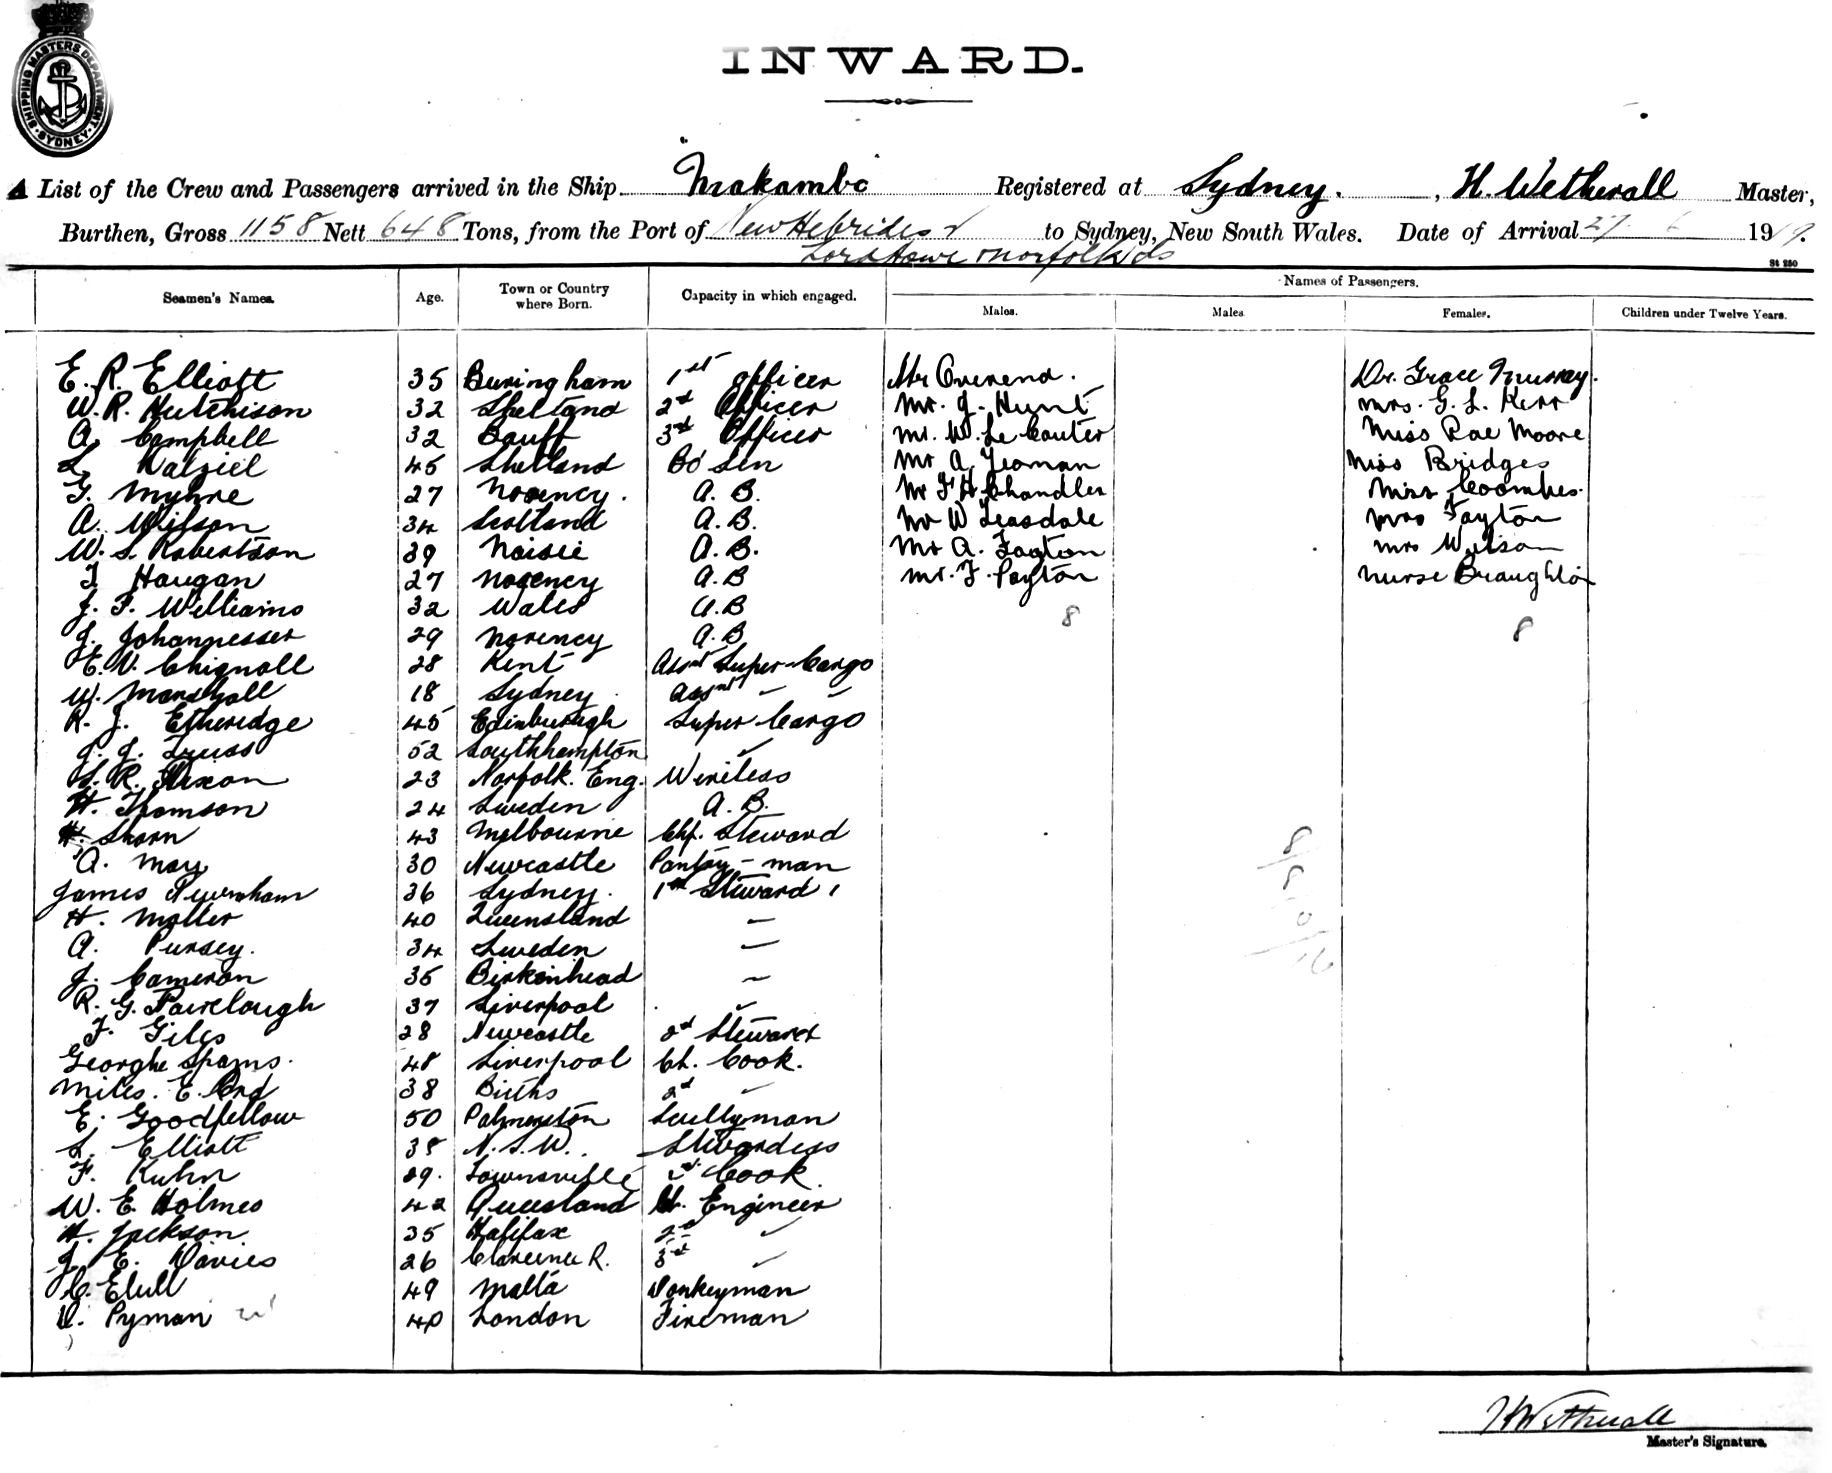 SHIPPING MASTERS DEPARTMENT
SYDNEY
INWARD.
A List of the Crew and Passengers arrived in the Ship "Makambo" Registered at Sydney. , H. Wetherall Master,
Burthen, Gross 1158 Nett 648 Tons, from the Port of New Hebrides & to Sydney, New South Wales. Date of Arrival 27 6 1919.
Lord Howe Norfolk Ids
St 250
Names of Passengers.
Seamen's Names. Age. Town or Country where Born. Capacity in which engaged. Males. Males Females. Children under Twelve Years.
E. R. Elliott 35 1st officer Mr Overend. Dr. Grace Murray.
W. R. Hutchison 32 Shetland 2nd Officer Mr. J. Hunt Mrs. G. L. Kerr
A. Campbell 32 Banff 3rd Officer Mr. W. Le Couter Miss Rae Moore
L. Dalziel 45 Shetland Bo'Sen Mr A. Yeoman Miss Bridges
G. Myhre 27 A. B. Mr F H Chandler Miss Coombes.
A. Wilson 34 Scotland A. B. Mr W Teasdale Mrs
W. S. Robertson 39 A. B. Mr A. Mrs Wilson
Haugan 27 A. B Mr. F. Payton Nurse Braughton
J. F. Williams 32 Wales A. B 8
J. Johannesser 29 A. B 8
E. V. Chignall 28 Kent Assnt Super-Cargo
W. Marshall 18 Sydney Assnt - -
R. J. Etheridge 45 Edinburagh Super Cargo
J. J. Truss 52 Southhampton
S. R. Nixon 23 Norfolk. Eng. Wireless
H. Thomson 24 Sweden A. B.
H. Shorn 43 Melbourne Chf. Steward
A. May 30 Newcastle Pantry-man
James Newnham 36 Sydney. 1st Steward
H. Moller 40 Queensland -
A. Pursey. 34 Sweden -
J. Cameron 35 Birkenhead -
R. G. Fairclough 37 Liverpool
F. Giles 28 Newcastle 2nd Steward
Georghe Spams. 48 Liverpool Ch. Cook.
Miles. E. Ord 38 2nd
E. Goodfellow 50 Palmerston Scullyman
L. Elliott 38 N. S. W. Stewardess
F. Kuhn 29. Townsville Cook
W. E. Holmes 42 Queesland Ch. Engineer
H. Jackson 35 Halifax 2nd
J. E. Davies 26 Clarence R. 3rd
C. Elull 49 Malta Donkeyman
D. Pyman 40 London Fireman
H Wetherall
Master's Signature.